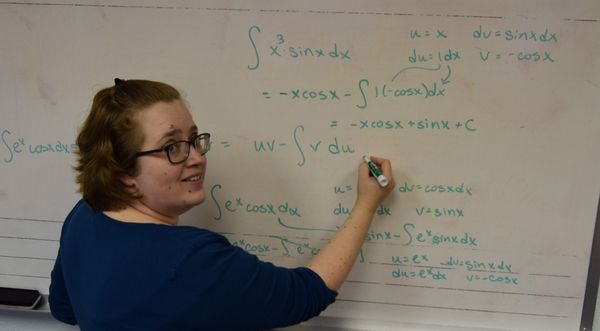 ∫ x³·sinx dx   u = x   dv = sinx dx
du = 1dx   v = -cosx
= -xcosx - ∫ 1(-cosx)dx
= -xcosx + sinx + C
∫eˣ cosx dx = = uv - ∫ v du
u = dv = cosx dx
∫eˣ cosx dx   du dx   v = sinx
sinx - ∫eˣ sinx dx
eˣcosx - ∫ eˣ   u = eˣ   dv = sinx dx
du = eˣdx   v = -cosx